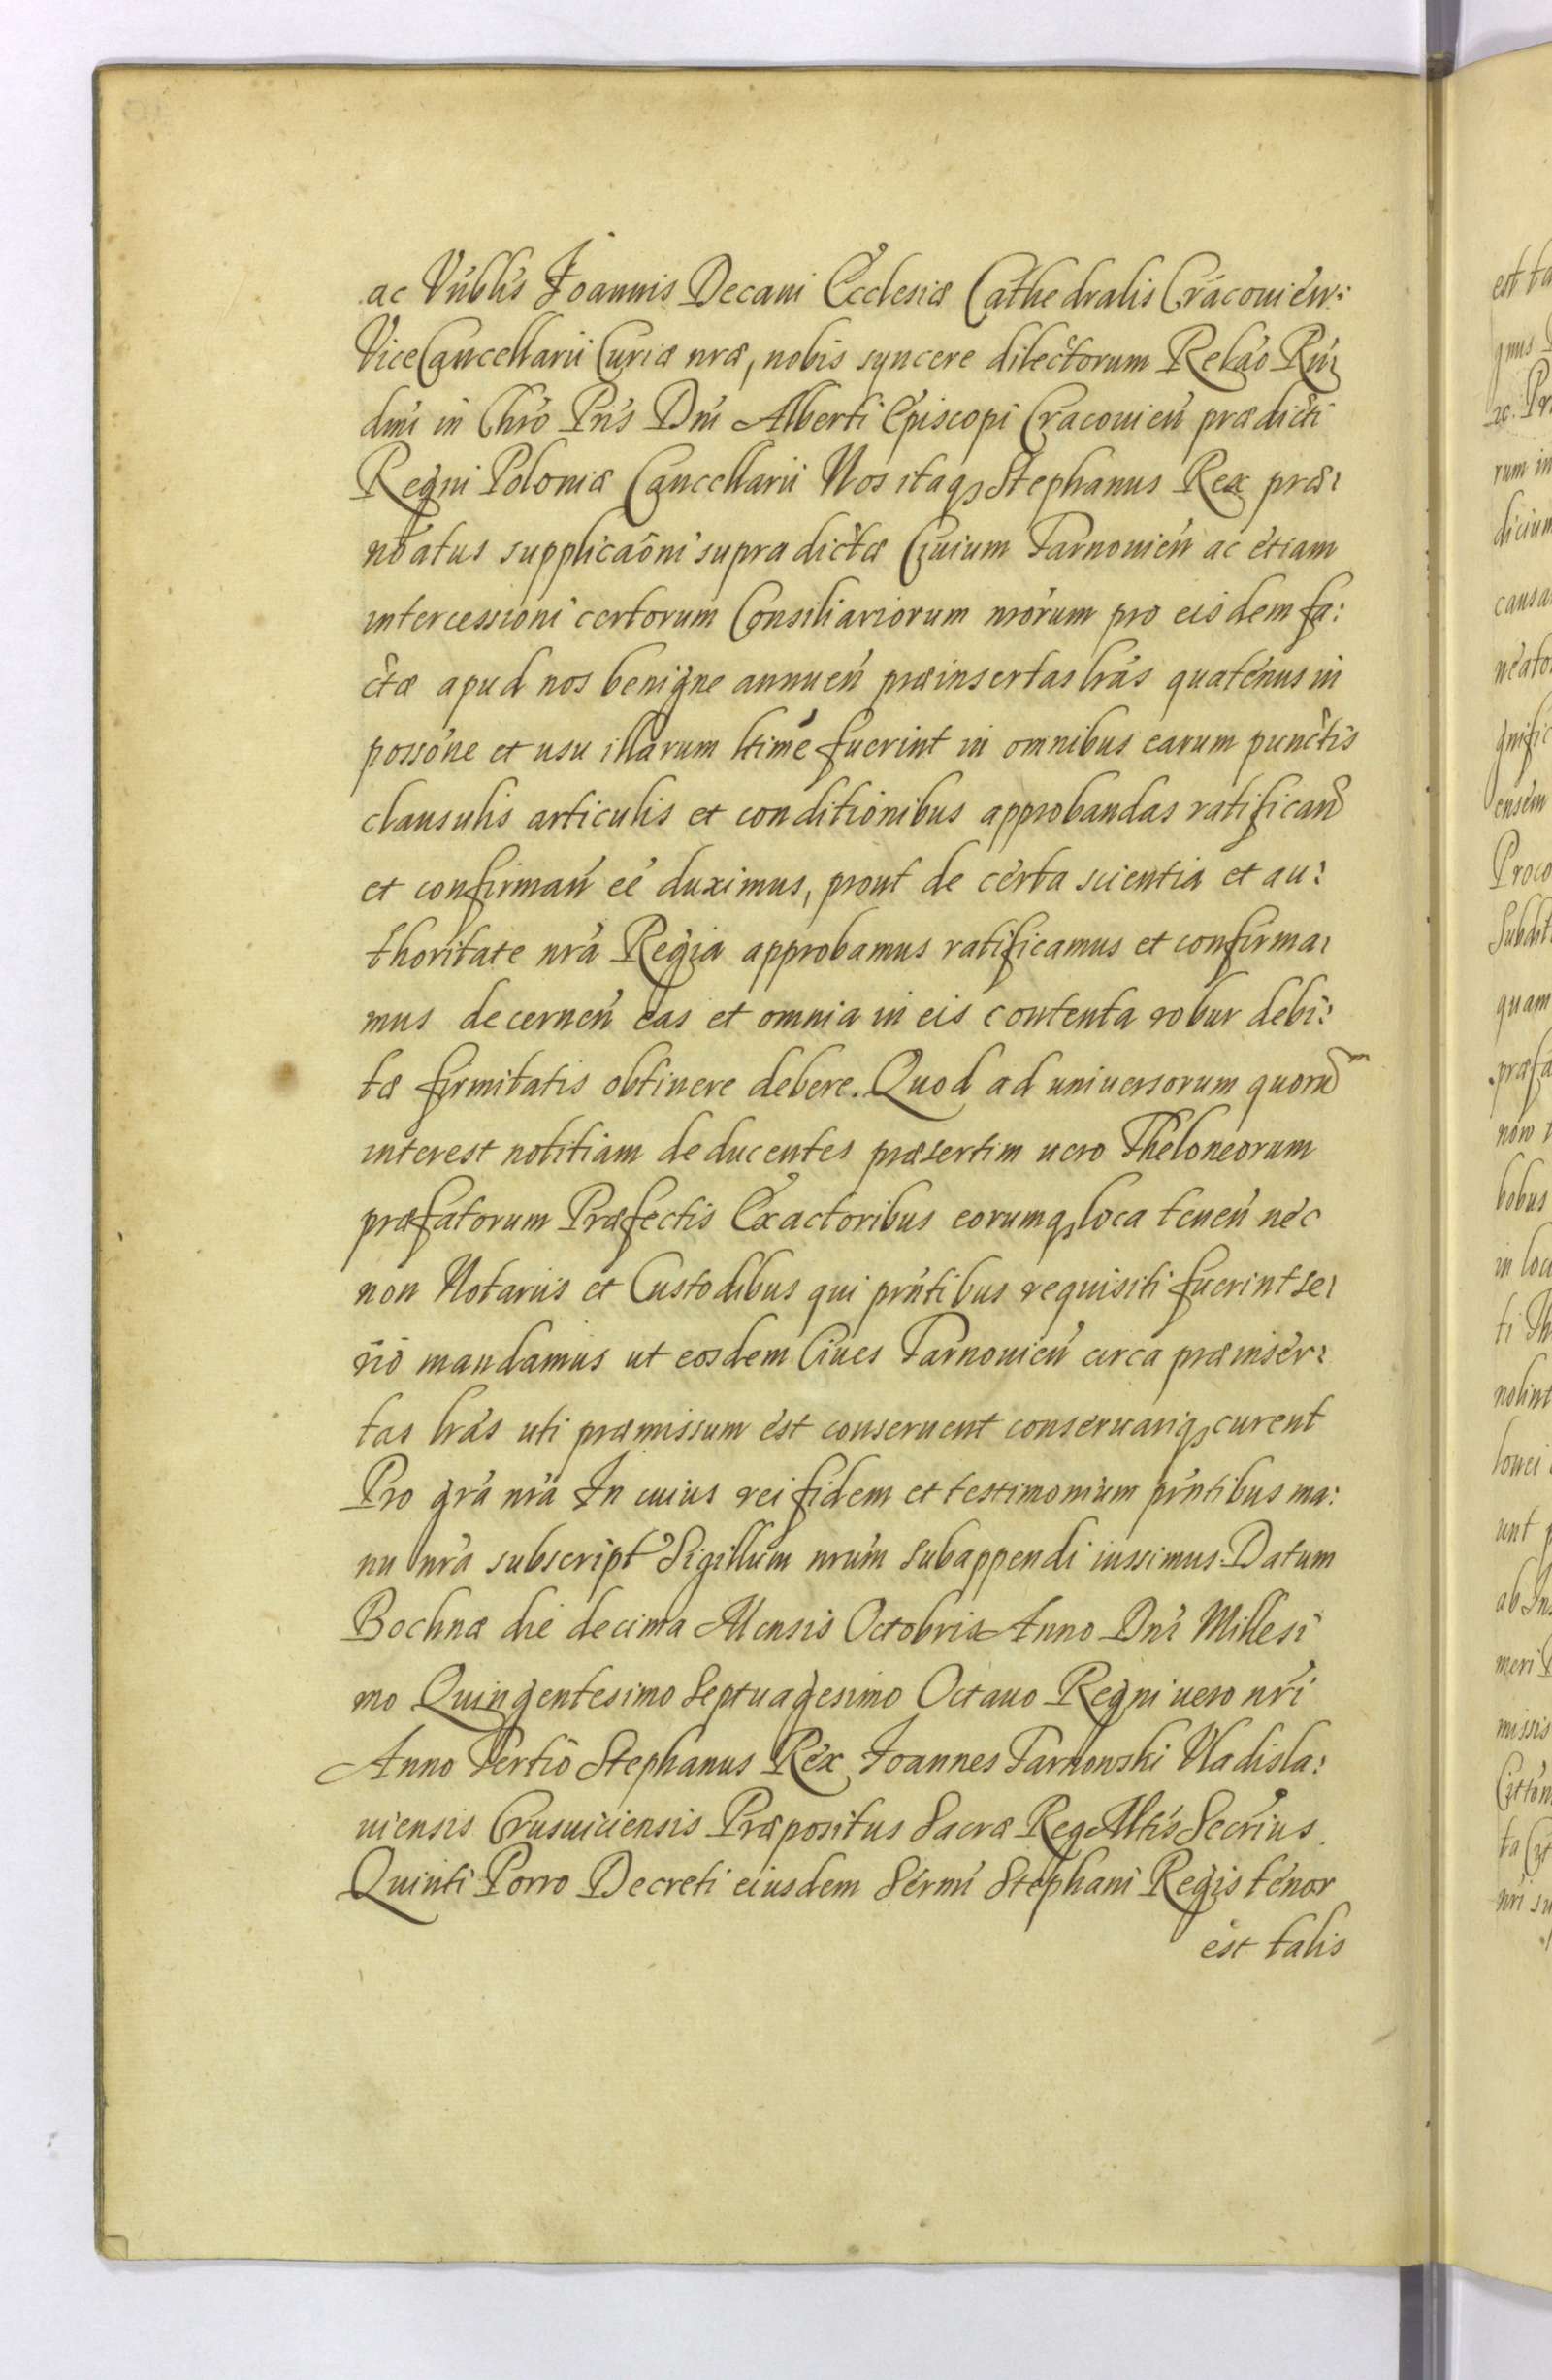 ac Vnblis Joannis Decani Ecclesiæ Cathedralis Cracouien:
ViceCancellarii Curiæ nræ, nobis syncere dilectorum Relao Rn
dmi in Chro Pris Dni Alberti Episcopi Cracouien prædicti
Regni Poloniæ Cancellarii Nos itaq Stephanus Rex præ:
noatus supplicaoni supra dictæ Ciuium Tarnouien ac etiam
intercessioni certorum Consiliariorum nrorum pro eisdem fa:
ctæ apud nos benigne annuen præinsertas lras quatenus in
possone et usu illarum ltime fuerint in omnibus earum punctis
clausulis articulis et conditionibus approbandas ratifican
et confirman ee duximus, prout de certa scientia et au:
thoritate nra Regia approbamus ratificamus et confirma:
mus decernen eas et omnia in eis contenta robur debi:
tæ firmitatis obtinere debere. Quod ad uniuersorum quorum
interest notitiam deducentes præsertim uero Theloneorum
præfatorum Præfectis Exactoribus eorumq loca tenen nec
non Notariis et Custodibus qui prntibus requisiti fuerint se:
rio mandamus ut eosdem Ciues Tarnouien circa præinser:
tas lras uti præmissum est conseruent conseruariq curent
Pro gra nra In cuius rei fidem et testimonium prntibus ma:
nu nra subscript Sigillum nrum subappendi iussimus. Datum
Bochnæ die decima Mensis Octobris Anno Dni Millesi
mo Quingentesimo Septuagesimo Octauo Regni uero nri
Anno Tertio Stephanus Rex Joannes Tarnowski Vladisla:
uiensis Crusuiciensis Præpositus Sacræ Reg Mtis Secrius.
Quinti Porro Decreti eiusdem Sermi Stephani Regis tenor
est talis